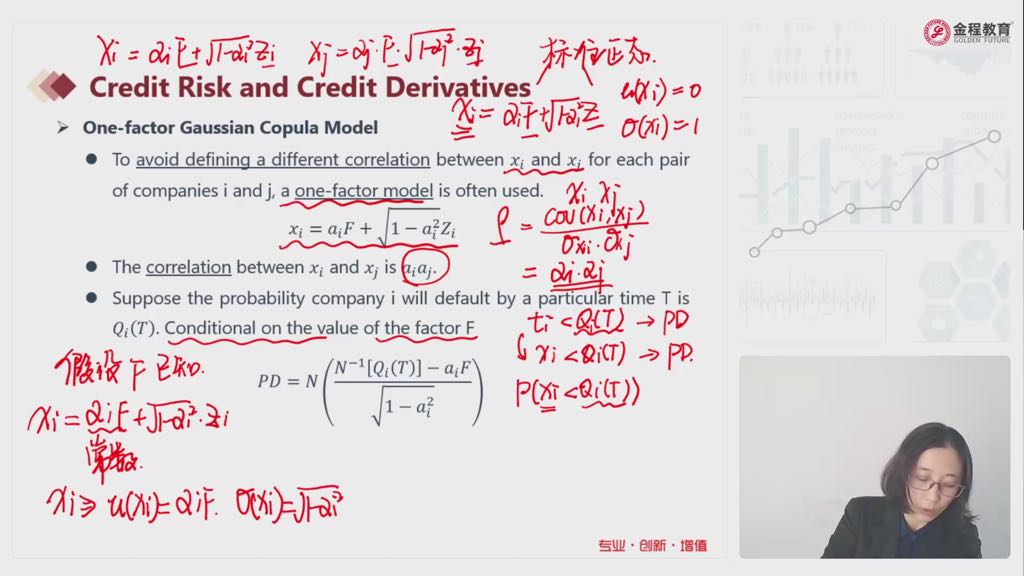 xi = aiF + √1-ai² Zi   xj = aj·F·√1-aj²·Zj
标准正态.
金程教育
GOLDEN FUTURE
Credit Risk and Credit Derivatives
xi = aiF + √1-ai² Z
u(xi) = 0
σ(xi) = 1
➢ One-factor Gaussian Copula Model
● To avoid defining a different correlation between xi and xj for each pair
of companies i and j, a one-factor model is often used.
xi = aiF + √1 − ai² Zi
xi xj
ρ = cov(xi,xj) / σxi·σxj
= ai·aj
● The correlation between xi and xj is aiaj.
● Suppose the probability company i will default by a particular time T is
Qi(T). Conditional on the value of the factor F
ti < Qi(T) → PD
xi < Qi(T) → PD.
P(xi < Qi(T))
PD = N( (N⁻¹[Qi(T)] − aiF) / √1 − ai² )
假设 F 已知.
xi = aiF + √1-ai²·Zi
常数.
xi ⇒ u(xi) = aiF. σ(xi) = √1-ai²
专业·创新·增值